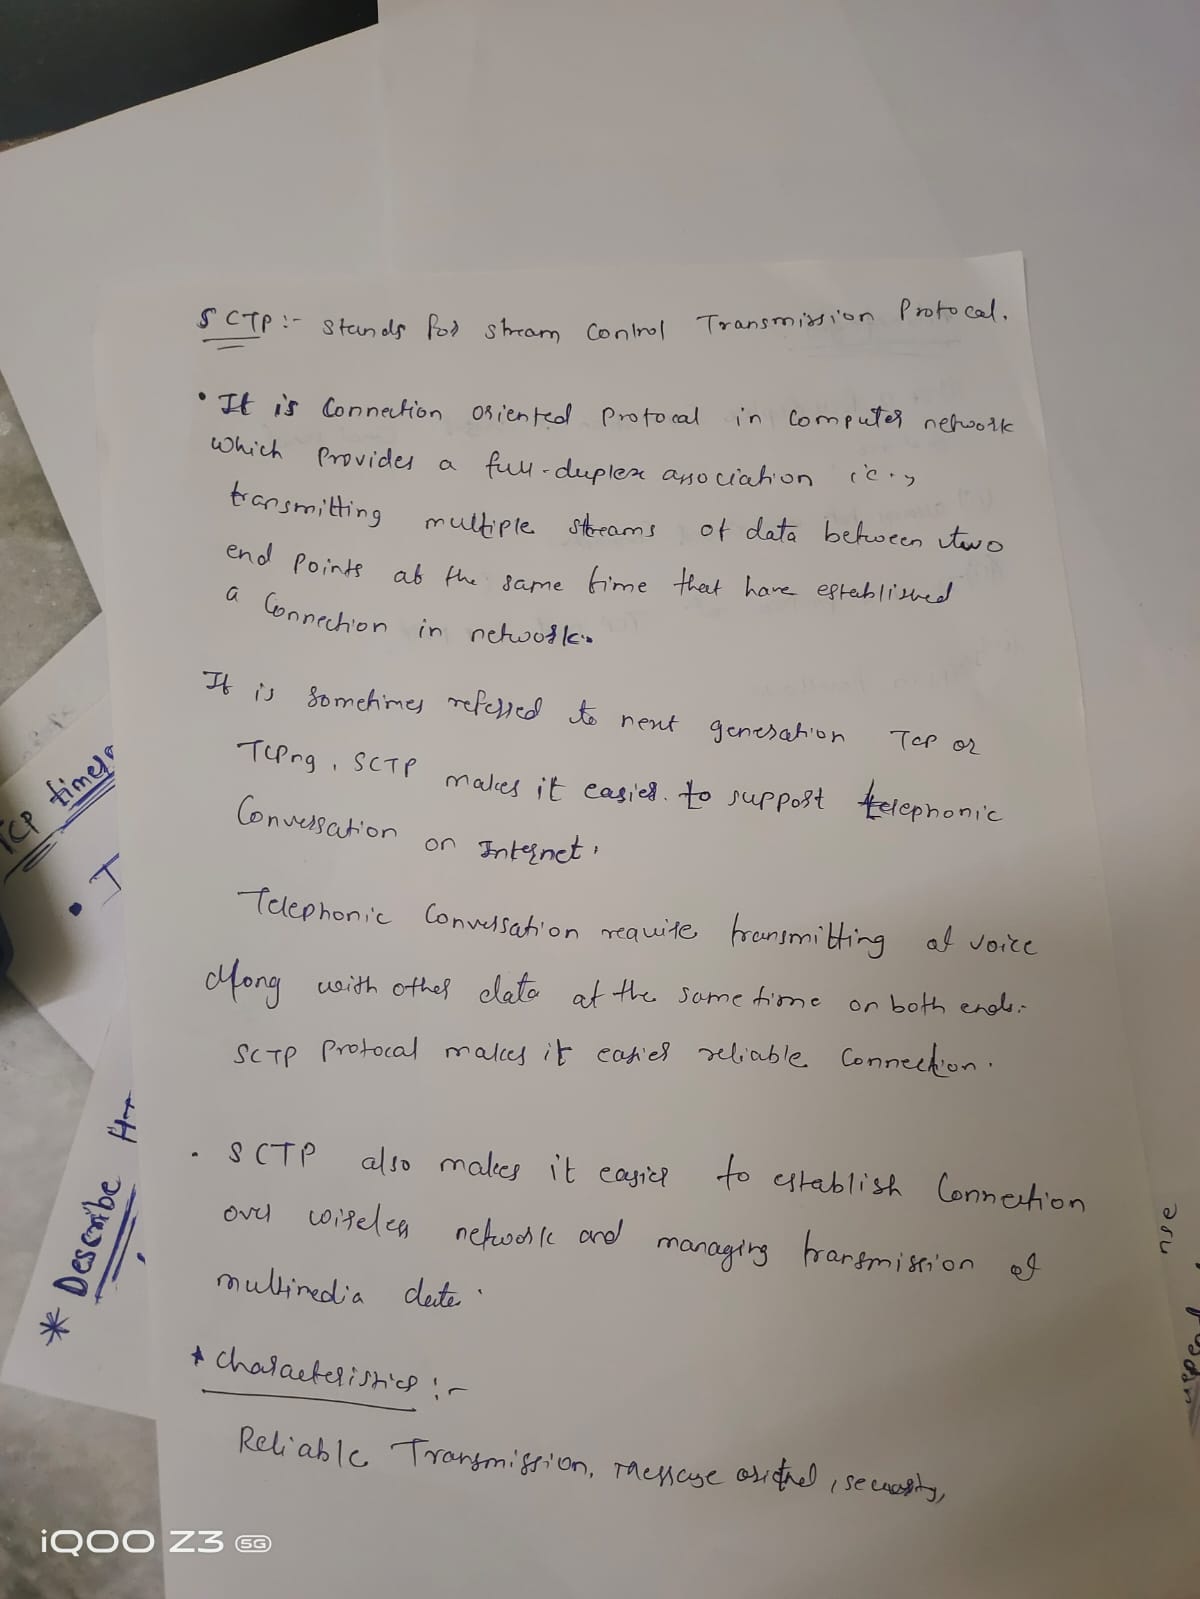 SCTP :- stands for stream Control Transmission Protocal.
• It is Connection oriented Protocal in Computer network
which Provides a full-duplex association i.e.,
transmitting multiple streams of data between two
end points at the same time that have established
a Connection in network.
It is Sometimes referred to next generation TCP or
TCPng, SCTP makes it easier to support telephonic
Conversation on Internet.
Telephonic Conversation require transmitting of voice
Along with other data at the same time on both ends.
SCTP Protocal makes it easier reliable Connection.
• SCTP also makes it easier to establish Connection
over wireless network and managing transmission of
multimedia data.
* Characteristics :-
Reliable Transmission, Message oriented, security,
TCP timers
• I
* Describe
use
iQOO Z3 5G